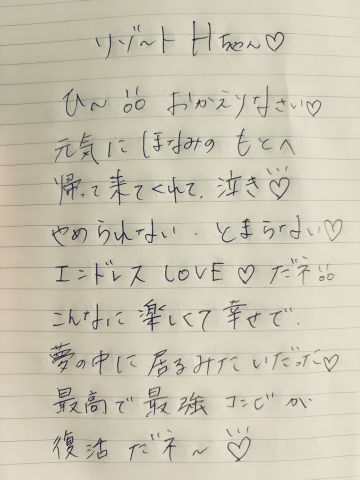 リゾート Hちゃん♡
ひ〜 おかえりなさい♡
元気に ほなみの もとへ
帰って来てくれて、泣き♡
やめられない・とまらない♡
エンドレス LOVE♡だネ
こんなに 楽しくて 幸せで、
夢の中に居るみたいだった♡
最高で最強コンビが
復活 だネ〜♡